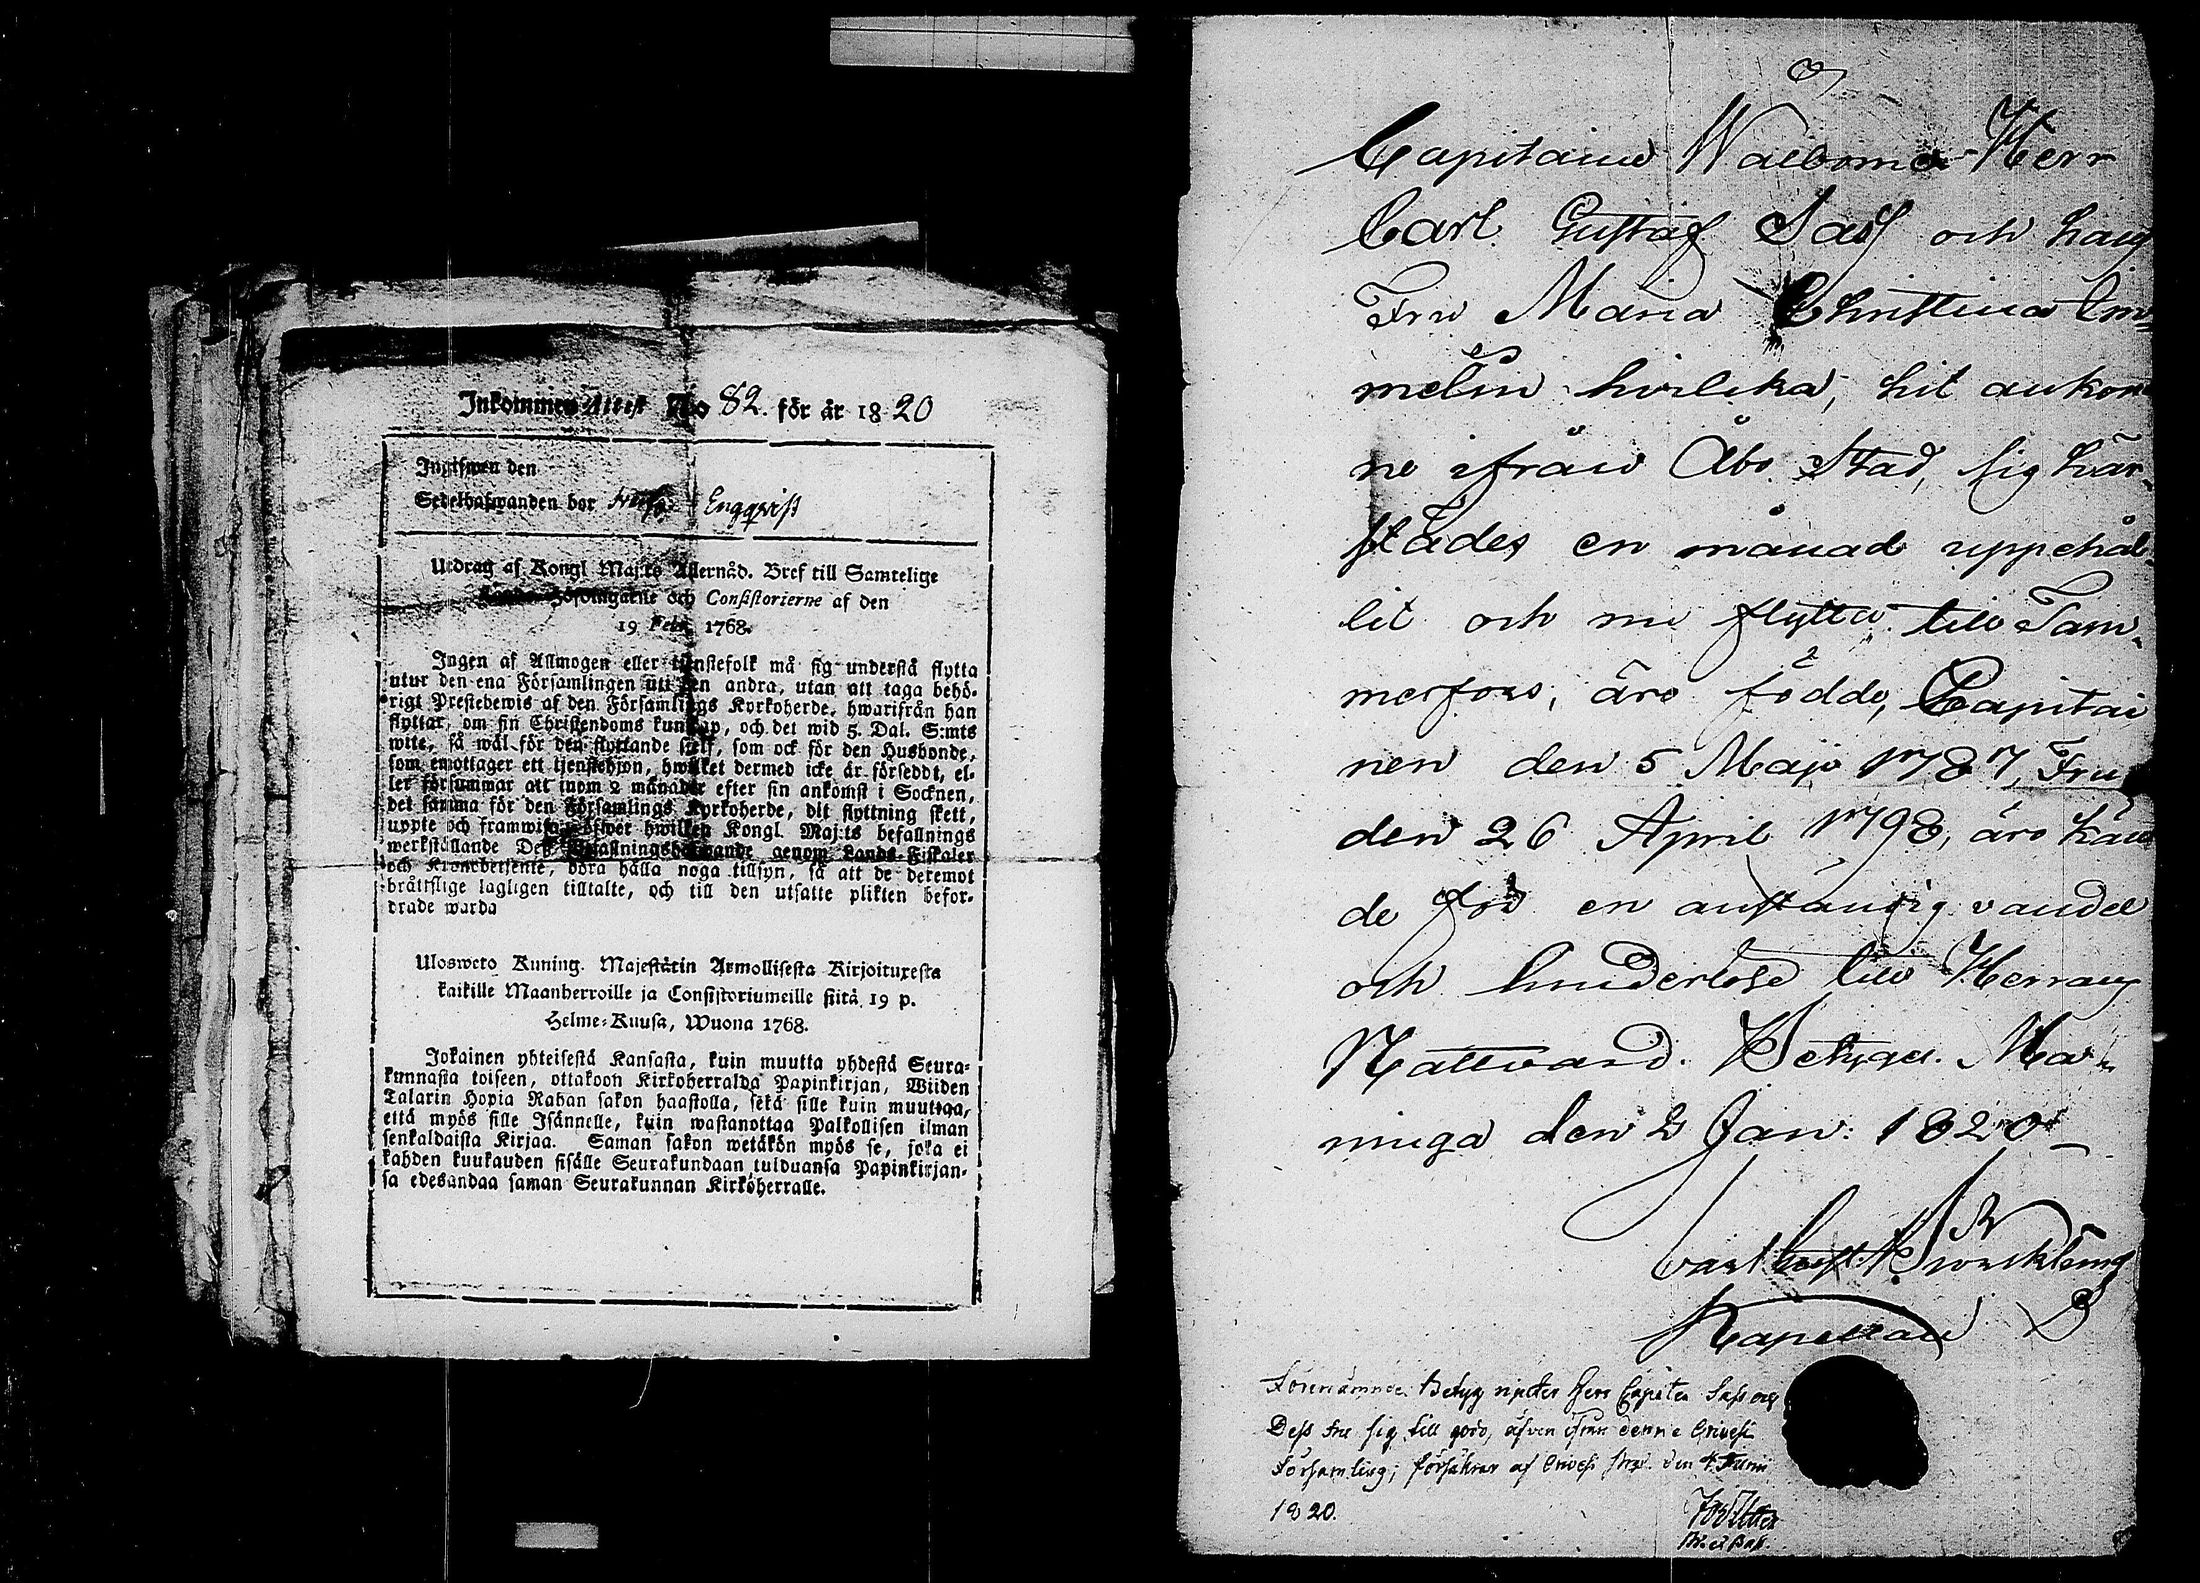 Inkommen Attest No 82. för år 1820
Ingifwen den
Sedelhafwanden bor Engqvist
Utdrag af Kongl Maj:ts Allernåd. Bref till Samtelige
Höfdingarne och Consistorierne af den
19 Febr. 1768.
Ingen af Allmogen eller tjenstefolk må sig understå flytta
utur den ena Församlingen uti den andra, utan att taga behö-
rigt Prestebewis af den Församlings Kyrkoherde, hwarifrån han
flyttar, om sin Christendoms kunskap, och det wid 5. Dal. S:mts
wite, så wäl för den flyttande sjelf, som ock för den Husbonde,
som emottager ett tjenstehjon, hwilket dermed icke är försedt, el-
ler försummar att inom 2 månader efter sin ankomst i Socknen,
det samma för den Församlings Kyrkoherde, dit flyttning skett,
uppte och framwisa; öfwer hwilken Kongl. Maj:ts befallnings
werkställande Des Befallningshafwande genom Lands-Fiskaler
och Kronobetjente, böra hålla noga tillsyn, så att de deremot
bråttslige lagligen tilltalte, och till den utsatte plikten befor-
drade warda
Ulosweto Kuning. Majestätin Armollisesta Kirjoituxesta
kaikille Maanherroille ja Consistoriumeille siitä 19 p.
Helme-Kuusa, Wuona 1768.
Jokainen yhteisestä Kansasta, kuin muutta yhdestä Seura-
kunnasta toiseen, ottakoon Kirkoherralda Papinkirjan, Wiiden
Talarin Hopia Rahan sakon haastolla, sekä sille kuin muuttaa,
että myös sille Isännelle, kuin wastanottaa Palkollisen ilman
senkaldaista Kirjaa. Saman sakon wetäkön myös se, joka ei
kahden kuukauden sisälle Seurakundaan tulduansa Papinkirjan-
sa edesandaa saman Seurakunnan Kirkoherralle.
Capitaine Wälborne Herr
Carl Gustaf Sass och hans
Fru Maria Christina Em-
melin hvilka, hit ankom-
ne ifrån Åbo Stad, sig här-
städes en månad uppehål-
lit och nu flytta till Tam-
merfors, äro födde, Capitai
nen den 5 Maji 1787, Fru
den 26 April 1798, äro kän
de för en anständig vandel
och hinderlöse till Herrans
Nattvard. Betygar. Ma-
ninga den 2 Jan: 1820
Carl Gust
Kapellan
Förenämnde Betyg njuter Herr Capiten Sass och
Dess Fru sig till godo, äfven ifrån denne Orivesi
Församling; försäkrar af Orivesi den 4 Junii
1820.